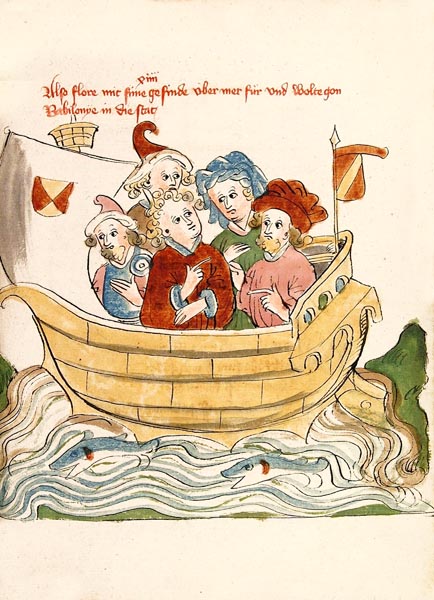 xiiii
Also flore mit sime gesinde vber mer für vnd wolte gon
Babilonye in die stat